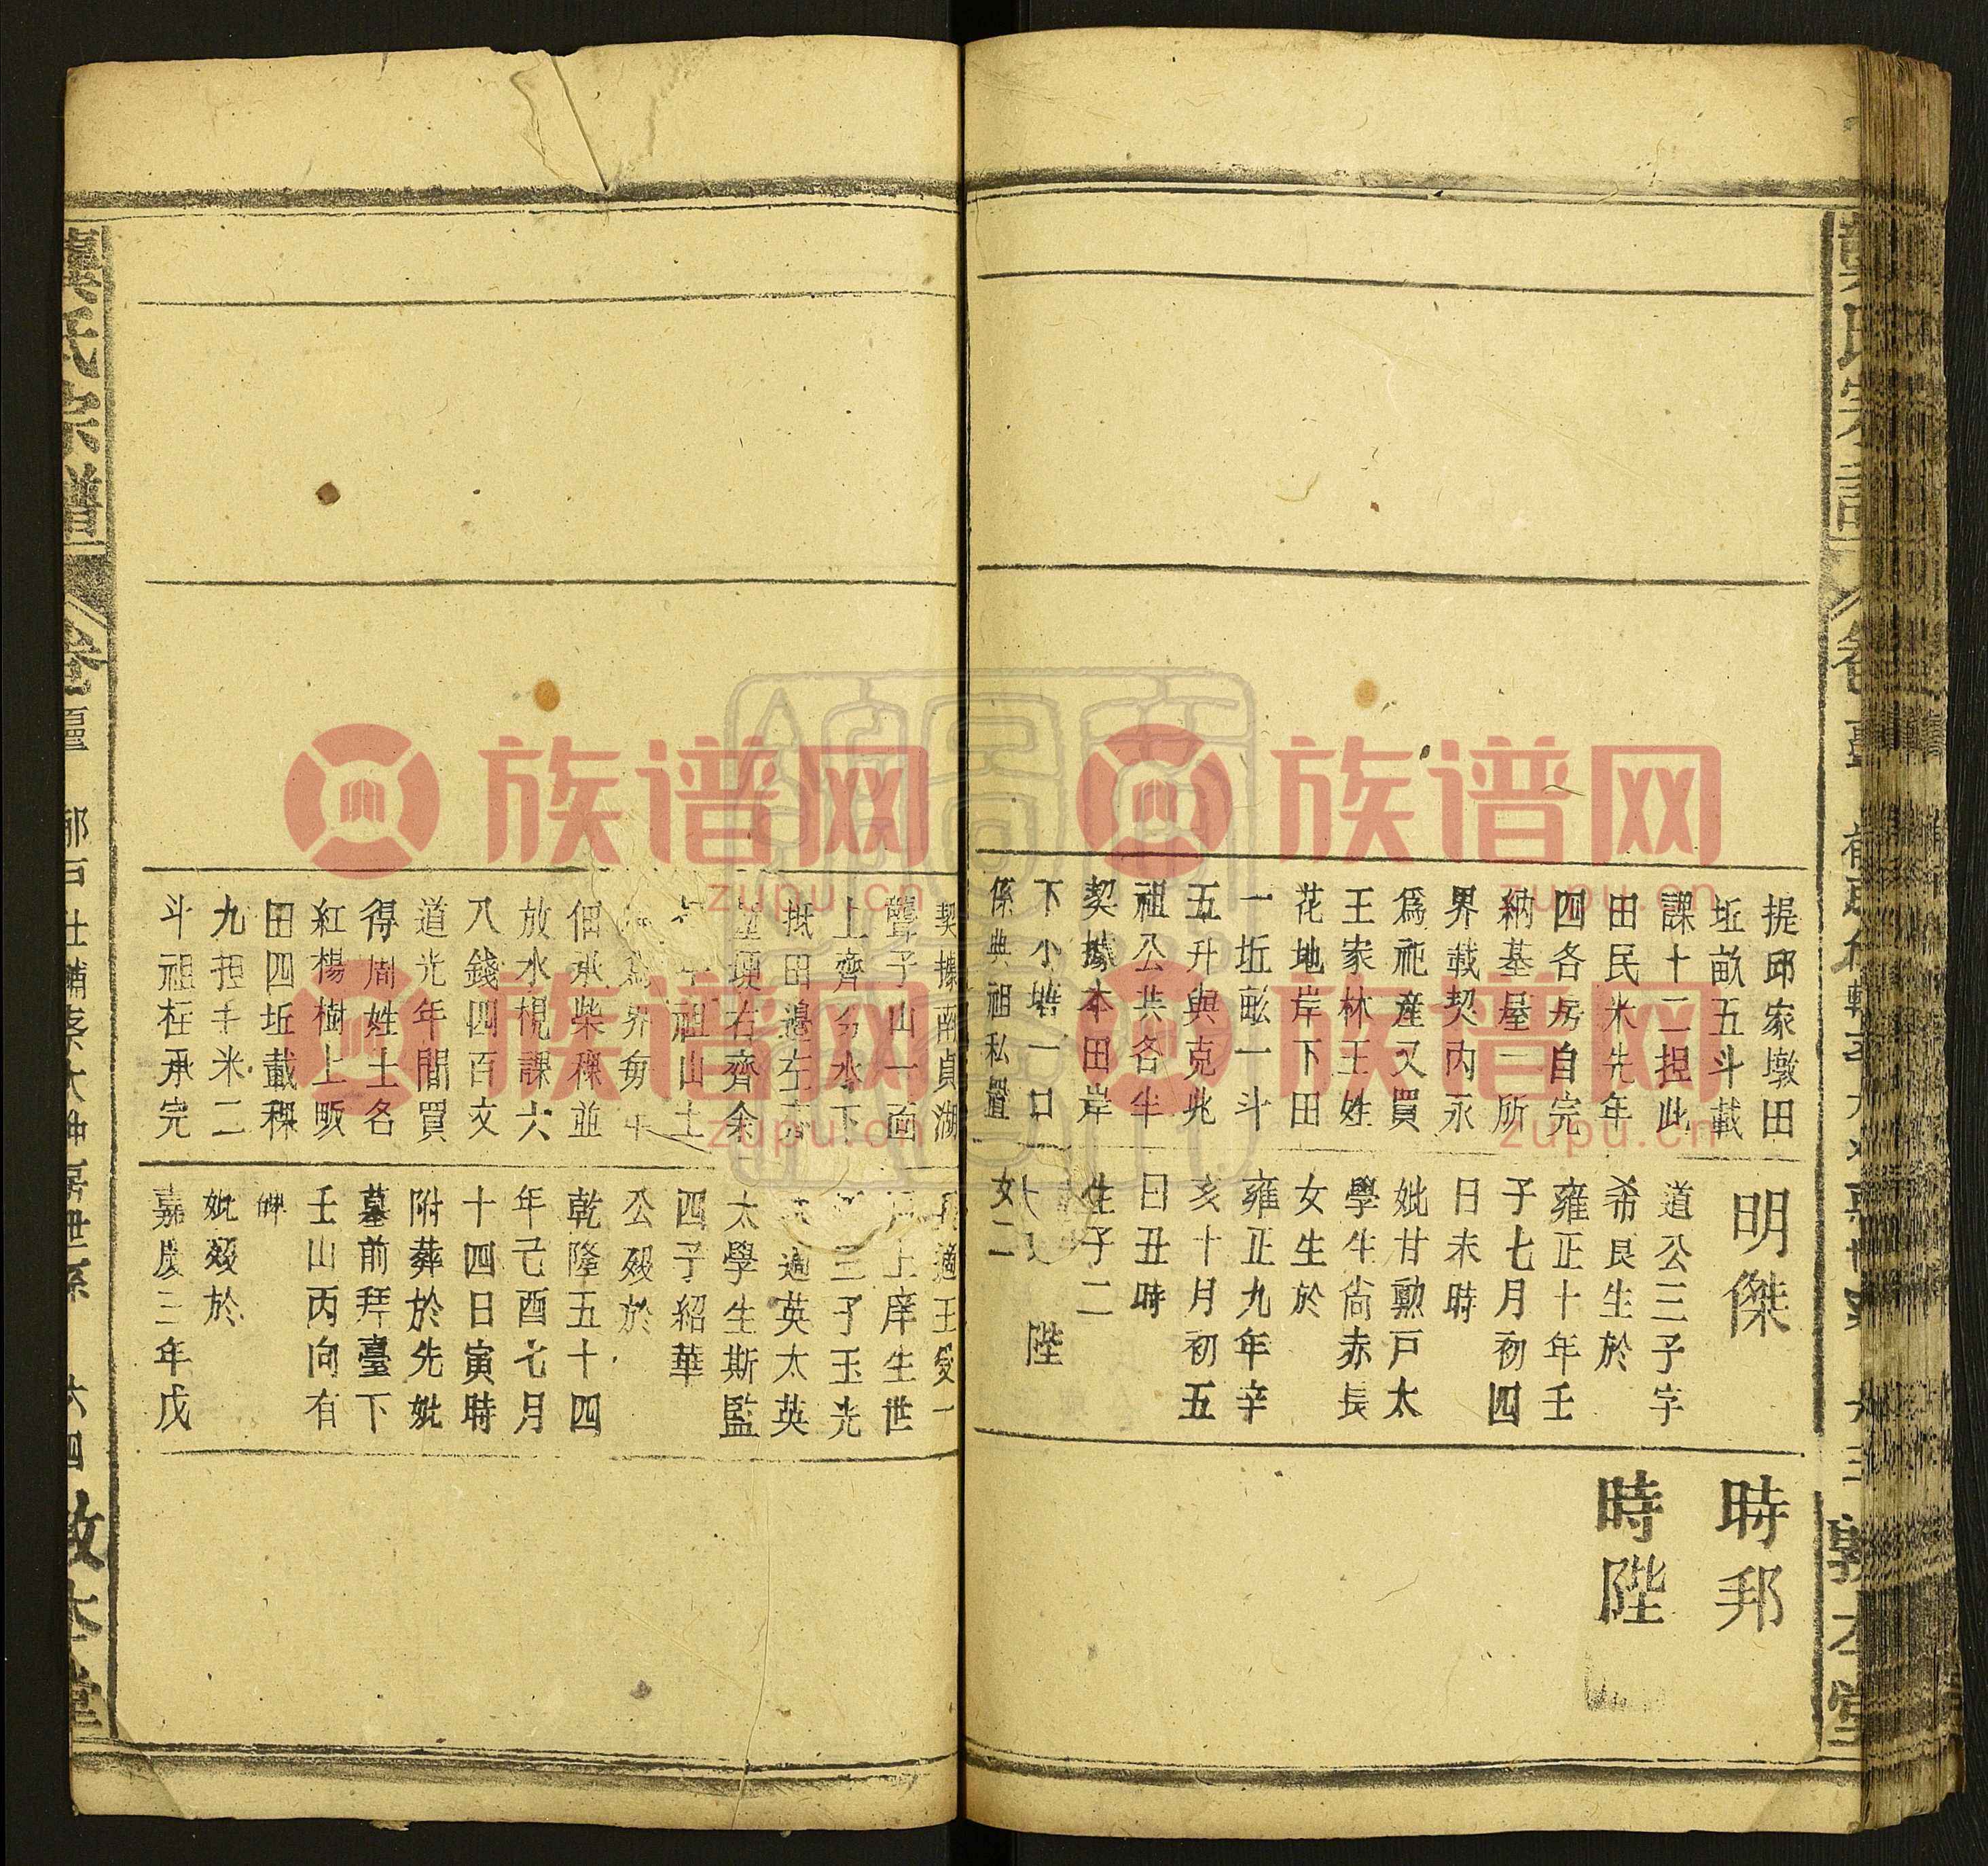 提邱家墩田
坵畝五斗載
課十二担此
田民米先年
四各房自完
納基屋一所
界載契內永
爲祀產又買
王家林王姓
花地岸下田
一坵畝一斗
五升與克兆
祖公共各半
契據本田岸
下小塘一口
係典祖私置
明傑
道公三子字
希良生於
雍正十年壬
子七月初四
日未時
妣甘勲戶太
學生尙赤長
女生於
雍正九年辛
亥十月初五
日丑時
生子二
陛
女二
時邦
時陛
契據南貞湖
聾子山一面
上齊分水下
抵田邊左
埂右齊余
祖山土
爲界
佃承柴稞並
放水梘課六
八錢四百文
道光年間買
得周姓土名
紅楊樹上畈
田四坵載稞
九担半米二
斗祖在承完
適王愛一
上庠生世
三子玉光
適英太英
太學生斯監
四子紹華
公歿於
乾隆五十四
年己酉七月
十四日寅時
附葬於先妣
墓前拜臺下
壬山丙向有
碑
妣歿於
嘉慶三年戊
氏宗譜
卷
六四
敦本堂
族谱网
zupu.cn
族谱网
zupu.cn
族谱网
zupu.cn
族谱网
zupu.cn